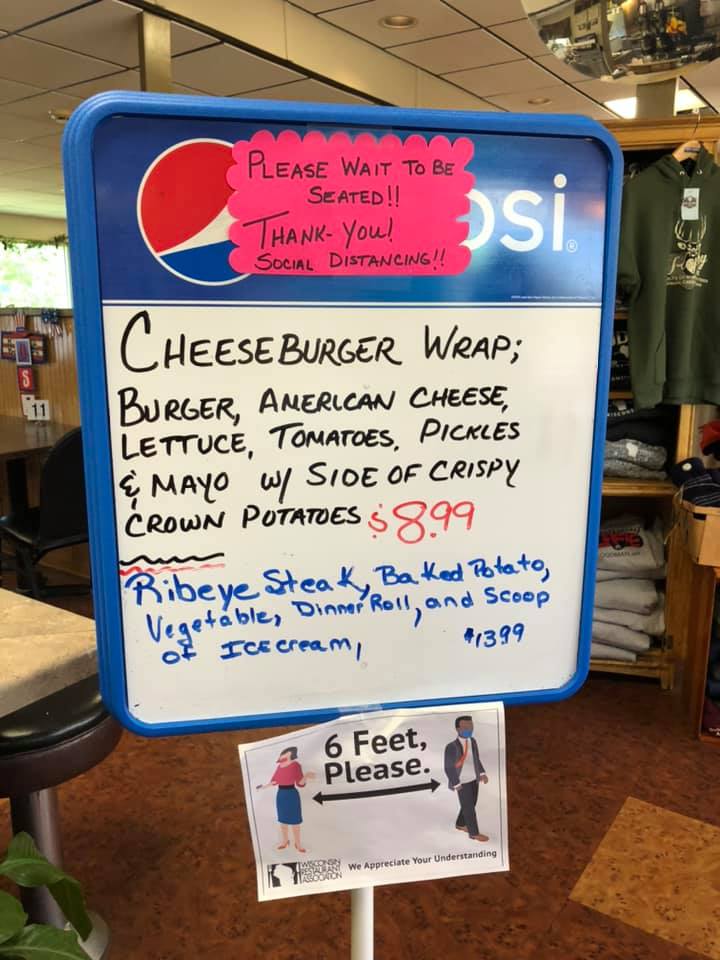 PLEASE WAIT TO BE
SEATED!!
THANK-YOU!
SOCIAL DISTANCING!!
psi
CHEESEBURGER WRAP;
BURGER, AMERICAN CHEESE,
LETTUCE, TOMATOES, PICKLES
& MAYO w/ SIDE OF CRISPY
CROWN POTATOES $8.99
Ribeye Steak, Baked Potato,
Vegetable, Dinner Roll, and Scoop
of ICE cream, $13.99
6 Feet,
Please.
WISCONSIN
RESTAURANT
ASSOCIATION
We Appreciate Your Understanding
S
11